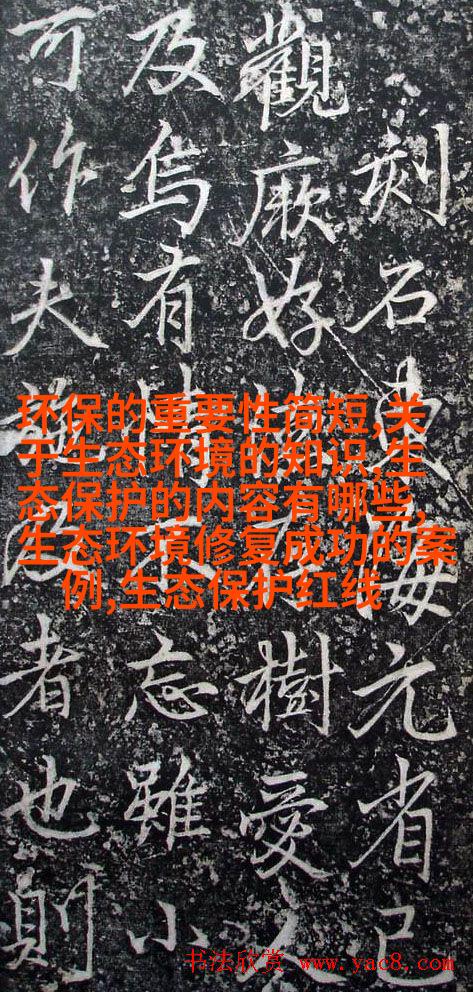 刻石元省已
觀厥好樹愛
及焉有忘雖小
可作夫者也則
环保的重要性简短,关
于生态环境的知识,生
态保护的内容有哪些,
生态环境修复成功的案
例,生态保护红线
书法欣赏 www.yac8.com